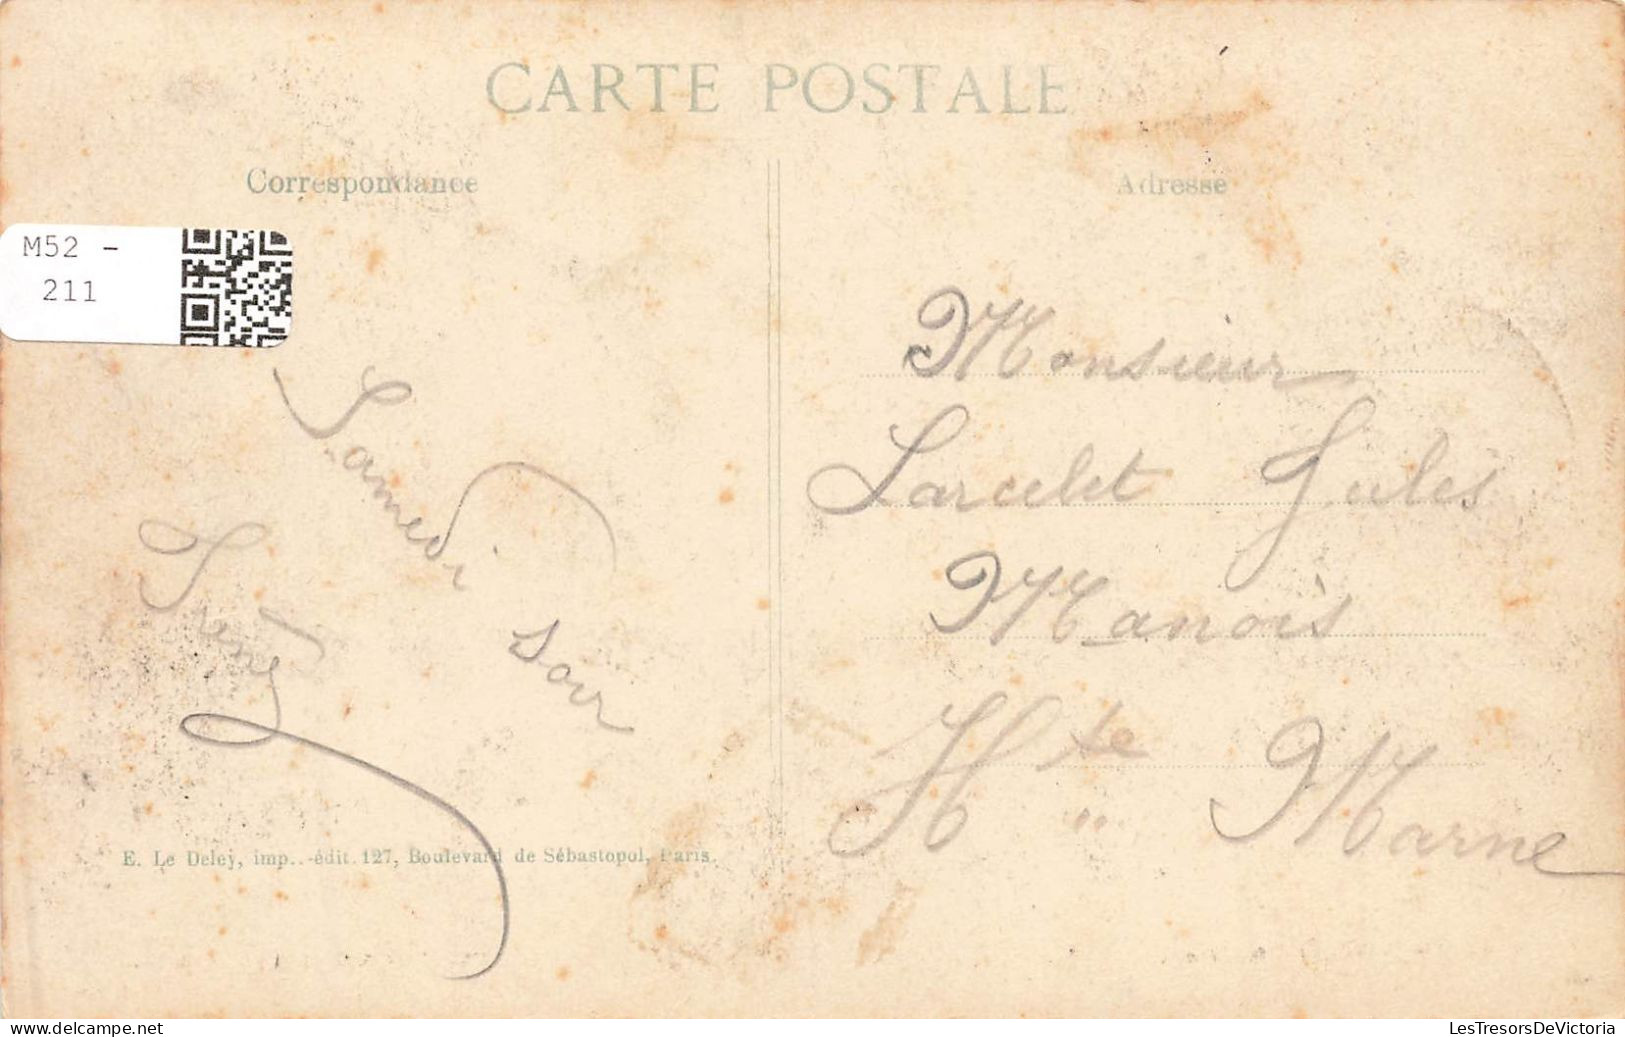 CARTE POSTALE
Correspondance
Adresse
M52 -
211
Samedi soir
Irène
Monsieur
Larcelet Jules
Manois
Hte Marne
E. Le Deley, imp.-édit. 127, Boulevard de Sébastopol, Paris.
delcampe.net
LesTresorsDeVictoria